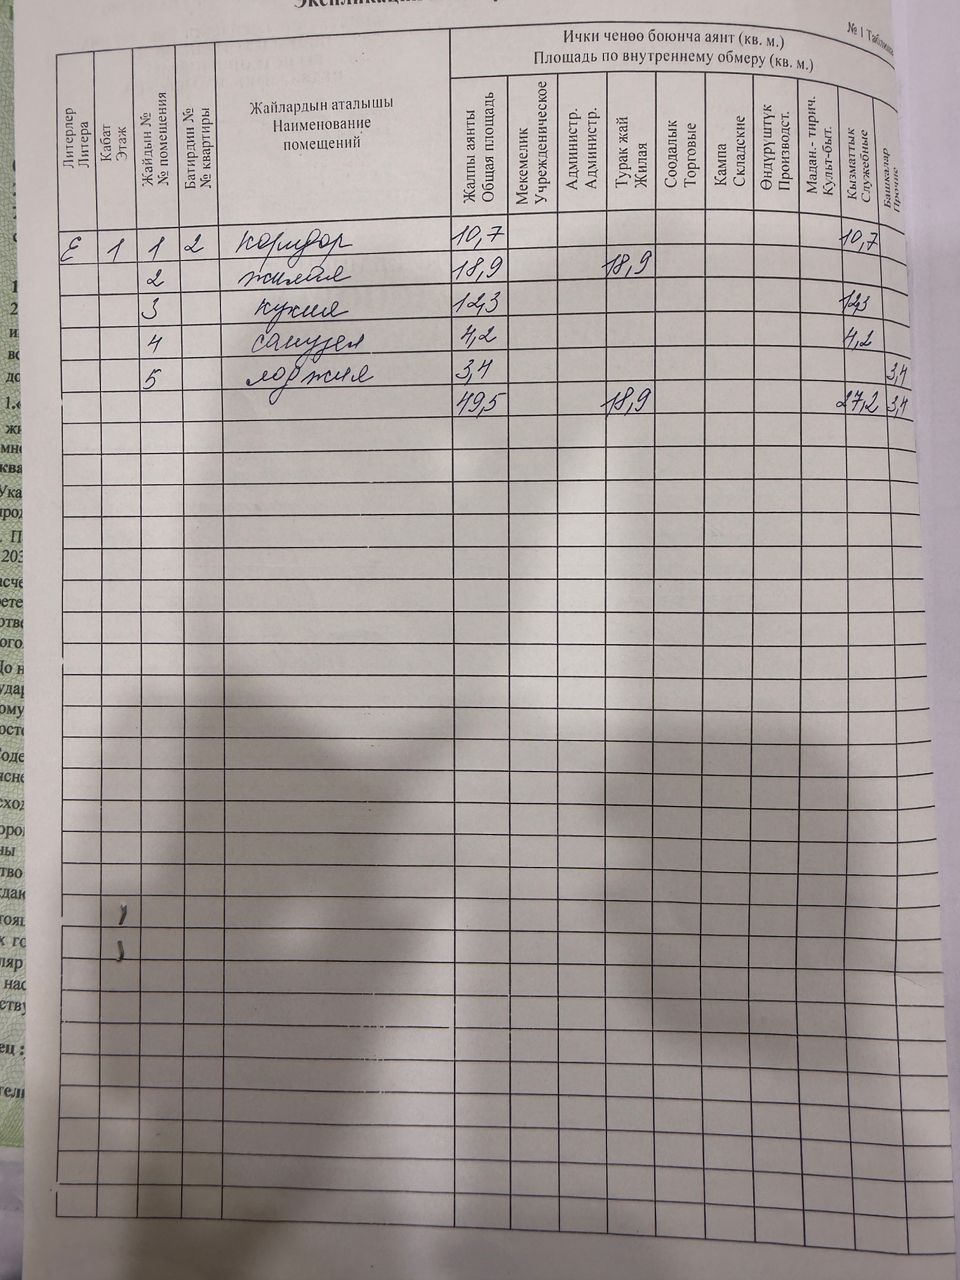 № 1 Таблица
Ички ченөө боюнча аянт (кв. м.)
Площадь по внутреннему обмеру (кв. м.)
Литерлер
Литера
Кабат
Этаж
Жайдын №
№ помещения
Батирдин №
№ квартиры
Жайлардын аталышы
Наименование
помещений
Жалпы аянты
Общая площадь
Мекемелик
Учрежденическое
Администр.
Администр.
Турак жай
Жилая
Соодалык
Торговые
Кампа
Складские
Өндүрүштүк
Производст.
Мадан.- тирич.
Культ-быт.
Кызматтык
Служебные
Башкалар
Прочие
Е 1 1 2 коридор 10,7 10,7
2 жилая 18,9 18,9
3 кухня 12,3 12,3
4 санузел 4,2 4,2
5 лоджия 3,4 3,4
49,5 18,9 27,2 3,4